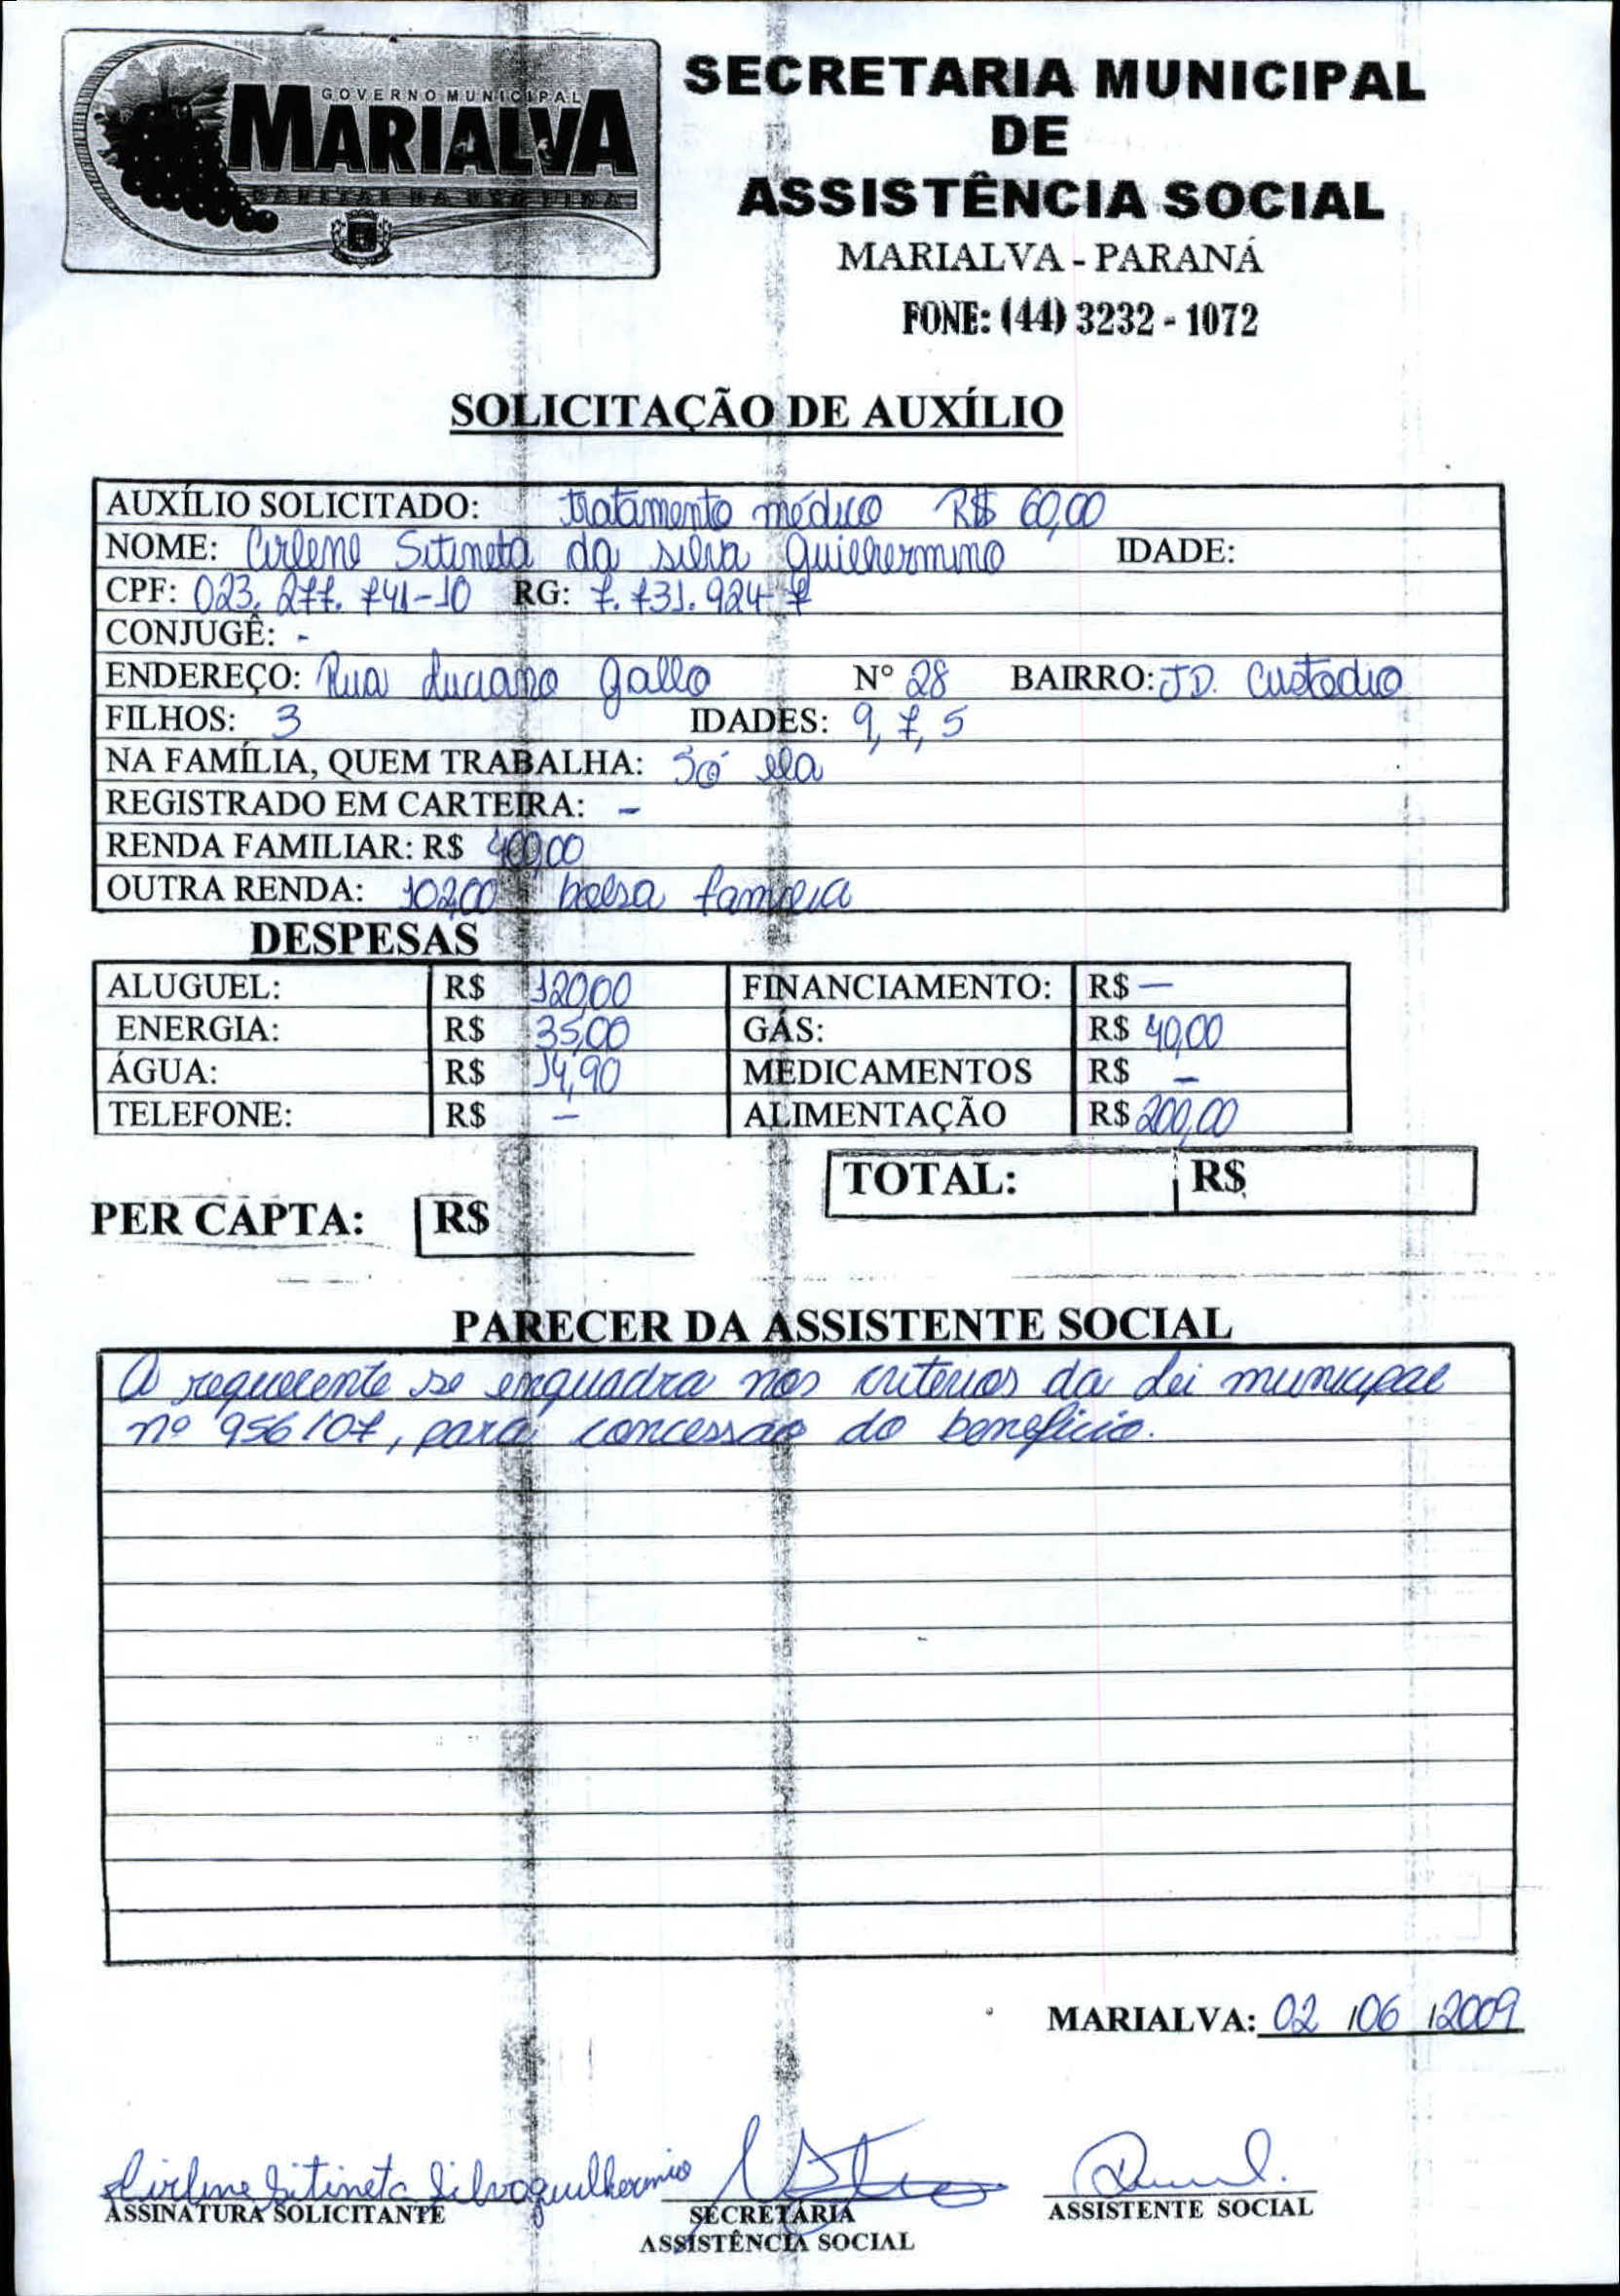 GOVERNO MUNICIPAL
MARIALVA
CAPITAL DA UVA FINA
SECRETARIA MUNICIPAL
DE
ASSISTÊNCIA SOCIAL
MARIALVA - PARANÁ
FONE: (44) 3232 - 1072
SOLICITAÇÃO DE AUXÍLIO
AUXÍLIO SOLICITADO: tratamento médico R$ 60,00
NOME: Cirlene Sitineta da silva guilhermino IDADE:
CPF: 023.277.741-10 RG: 7.731.924-7
CONJUGÊ: -
ENDEREÇO: Rua Luciano Gallo Nº 28 BAIRRO: JD. Custodio
FILHOS: 3 IDADES: 9, 7, 5
NA FAMÍLIA, QUEM TRABALHA: Só ela
REGISTRADO EM CARTEIRA: -
RENDA FAMILIAR: R$ 400,00
OUTRA RENDA: 102,00 bolsa familia
DESPESAS
ALUGUEL: R$ 120,00 FINANCIAMENTO: R$ -
ENERGIA: R$ 35,00 GÁS: R$ 40,00
ÁGUA: R$ 14,90 MEDICAMENTOS R$ -
TELEFONE: R$ - ALIMENTAÇÃO R$ 200,00
TOTAL: R$
PER CAPTA: R$
PARECER DA ASSISTENTE SOCIAL
A requerente se enquadra nos criterios da Lei municipal
nº 956/07, para concessão do beneficio.
MARIALVA: 02/06/2009
Cirlene Sitineta Silva guilhermio
ASSINATURA SOLICITANTE SECRETÁRIA ASSISTENTE SOCIAL
ASSISTÊNCIA SOCIAL